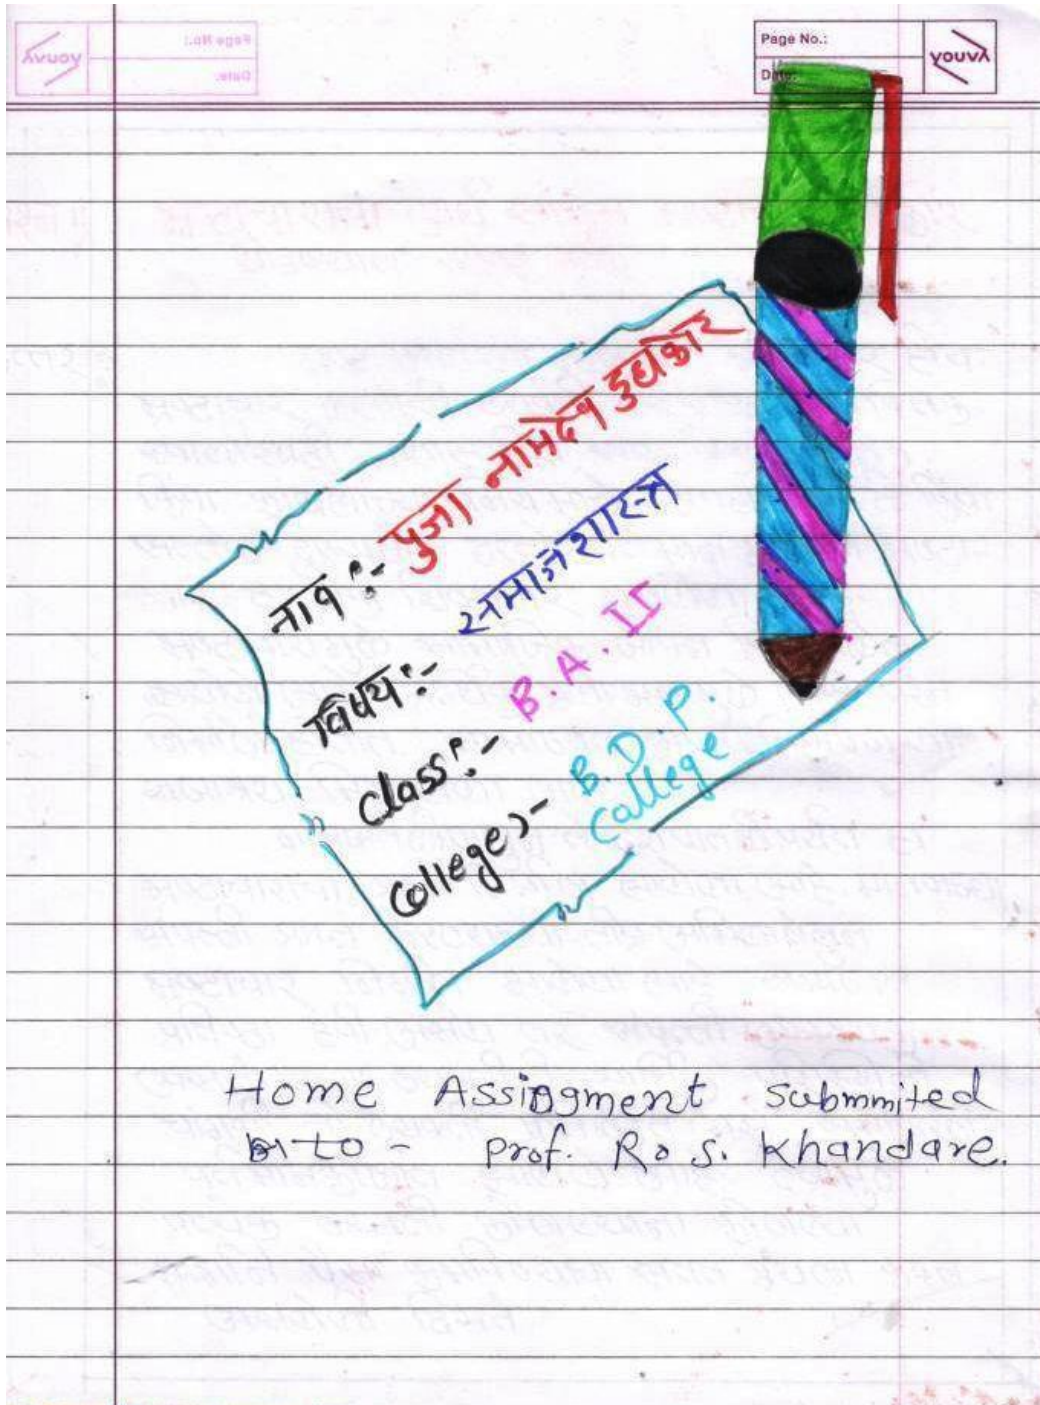 Page No.:
Date:
youvA
नाव :- पुजा नामदेव डुधकोर
विषय :- समाजशास्त्र
class :- B.A. II
college :- B.D.P.
college
Home Assingment submmited
to - Prof. R. S. Khandare.